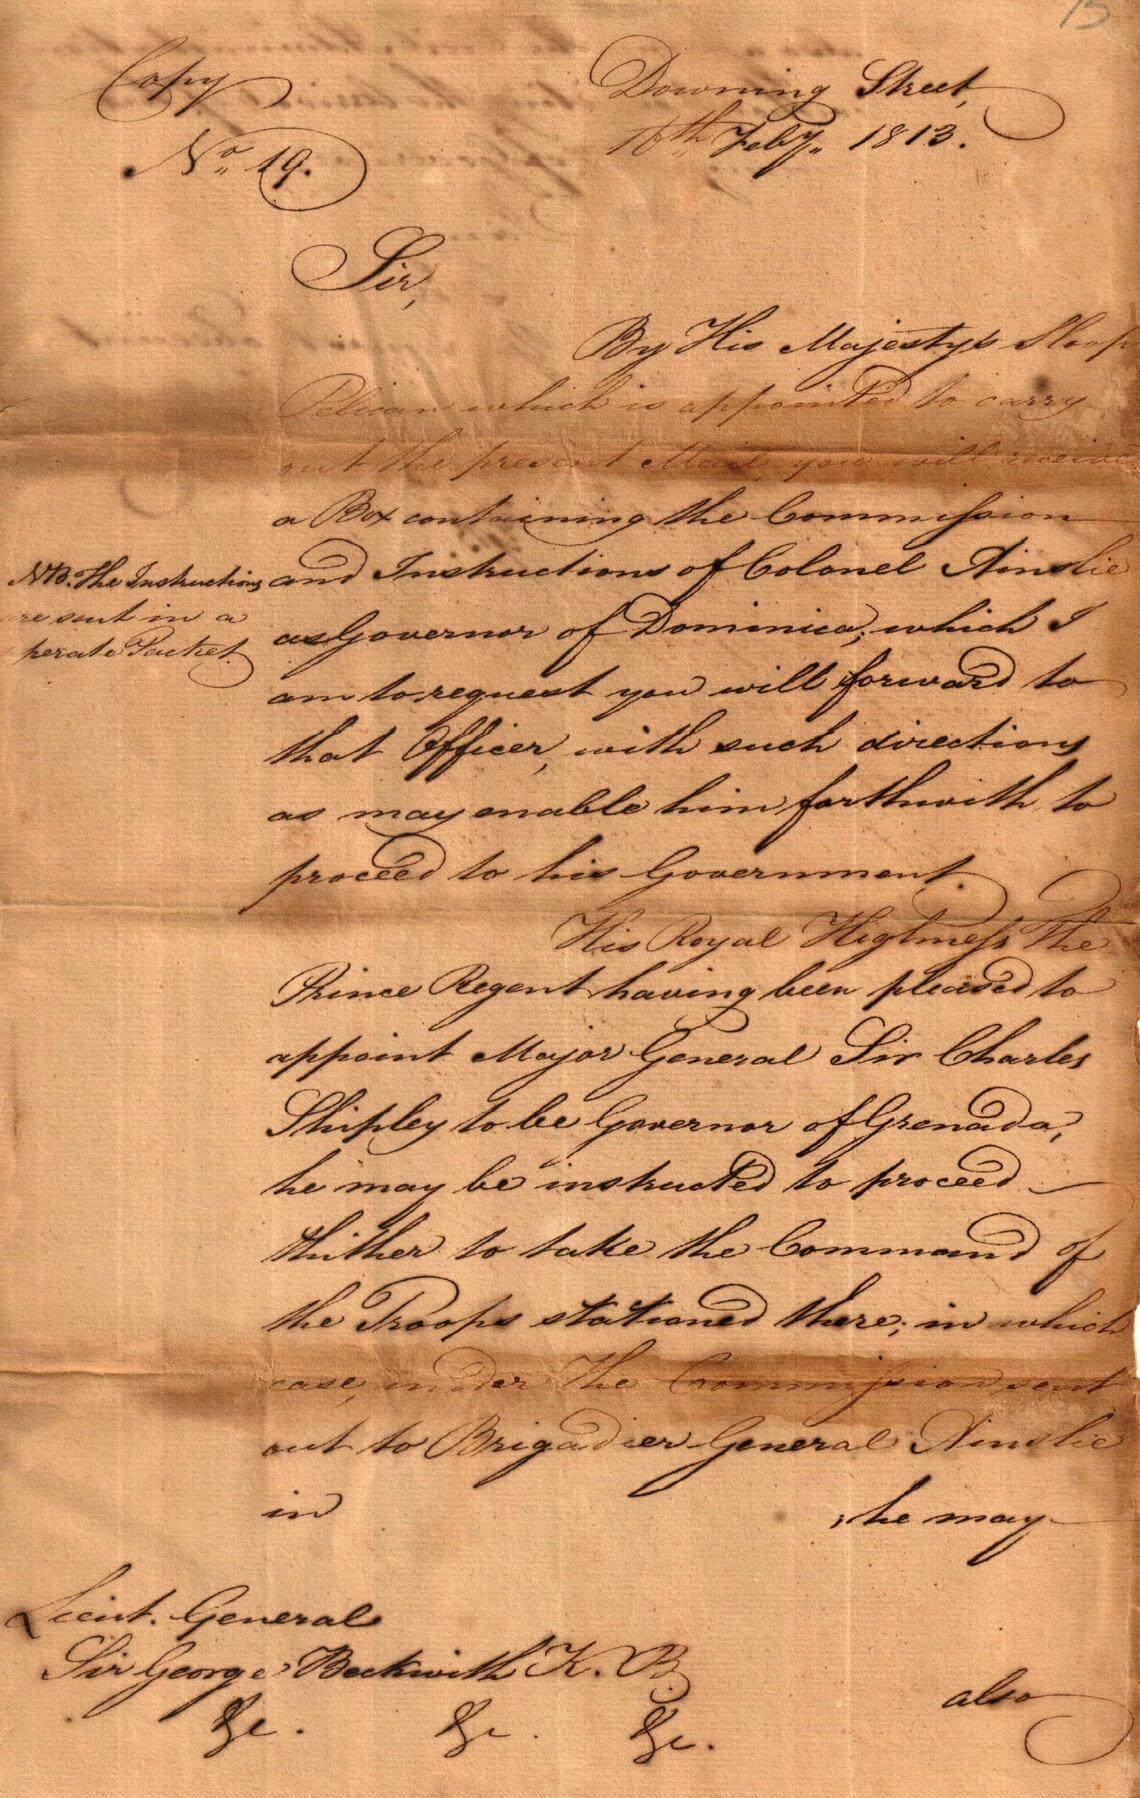 15
Copy
No. 19.
Downing Street,
16th Feby. 1813.
Sir,
By His Majesty's Sloop
Pelican which is appointed to carry
out the present Mail, you will receive
a Box containing the Commission
and Instructions of Colonel Ainslie
as Governor of Dominica, which I
am to request you will forward to
that Officer, with such directions
as may enable him forthwith to
proceed to his Government.
NB. The Instructions
are sent in a
seperate Packet.
His Royal Highness The
Prince Regent having been pleased to
appoint Major General Sir Charles
Shipley to be Governor of Grenada,
he may be instructed to proceed
thither to take the Command of
the Troops stationed there; in which
case, under the Commission sent
out to Brigadier General Ainslie
in , he may
Lieut. General
Sir George Beckwith K. B.
&c. &c. &c.
also